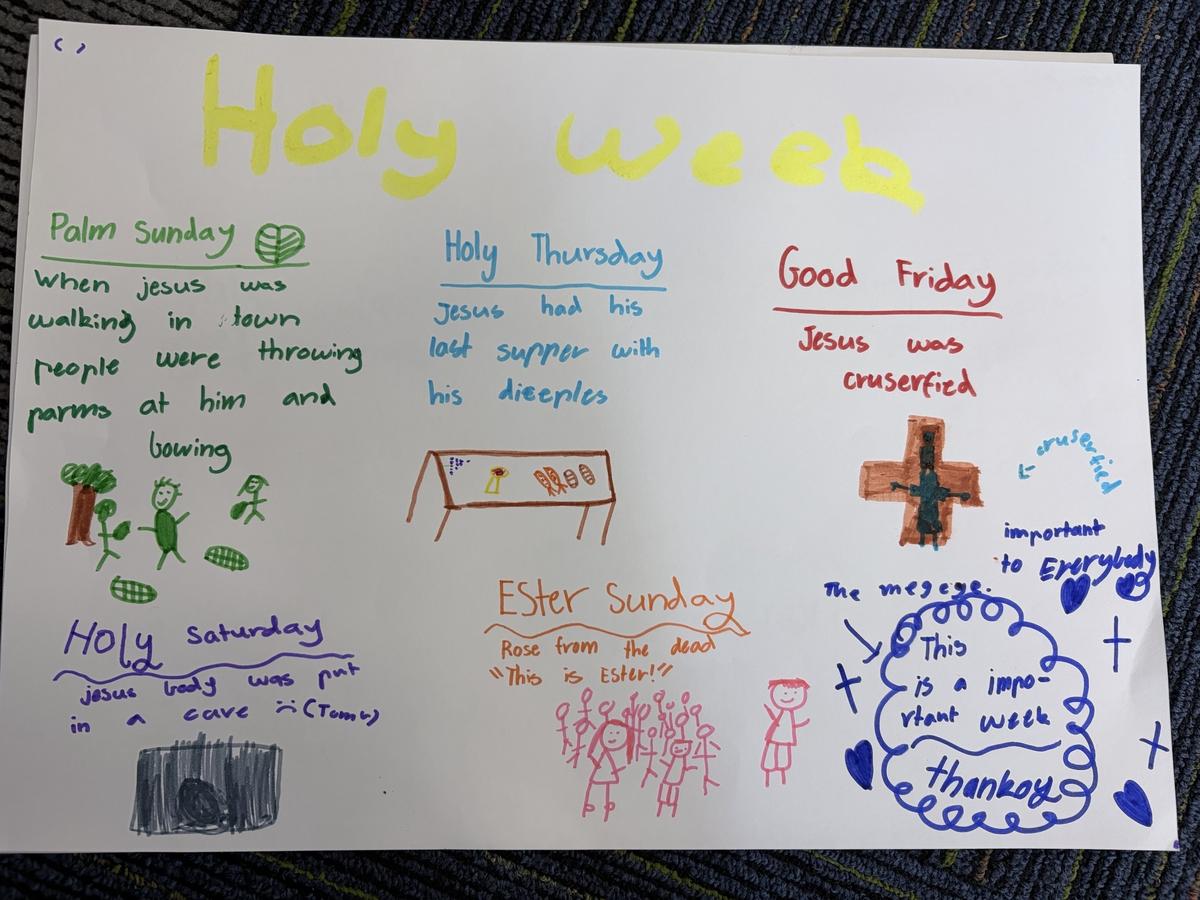 Holy week
Palm Sunday
When jesus was
walking in town
people were throwing
parms at him and
bowing
Holy Thursday
Jesus had his
last supper with
his diseples
Good Friday
Jesus was
cruserfied
cruserfied
important
to Everybody
Holy Saturday
jesus body was put
in a cave :( (Tomb)
Ester Sunday
Rose from the dead
"This is Ester!"
The megege.
This
is a impo-
rtant week
thankoy